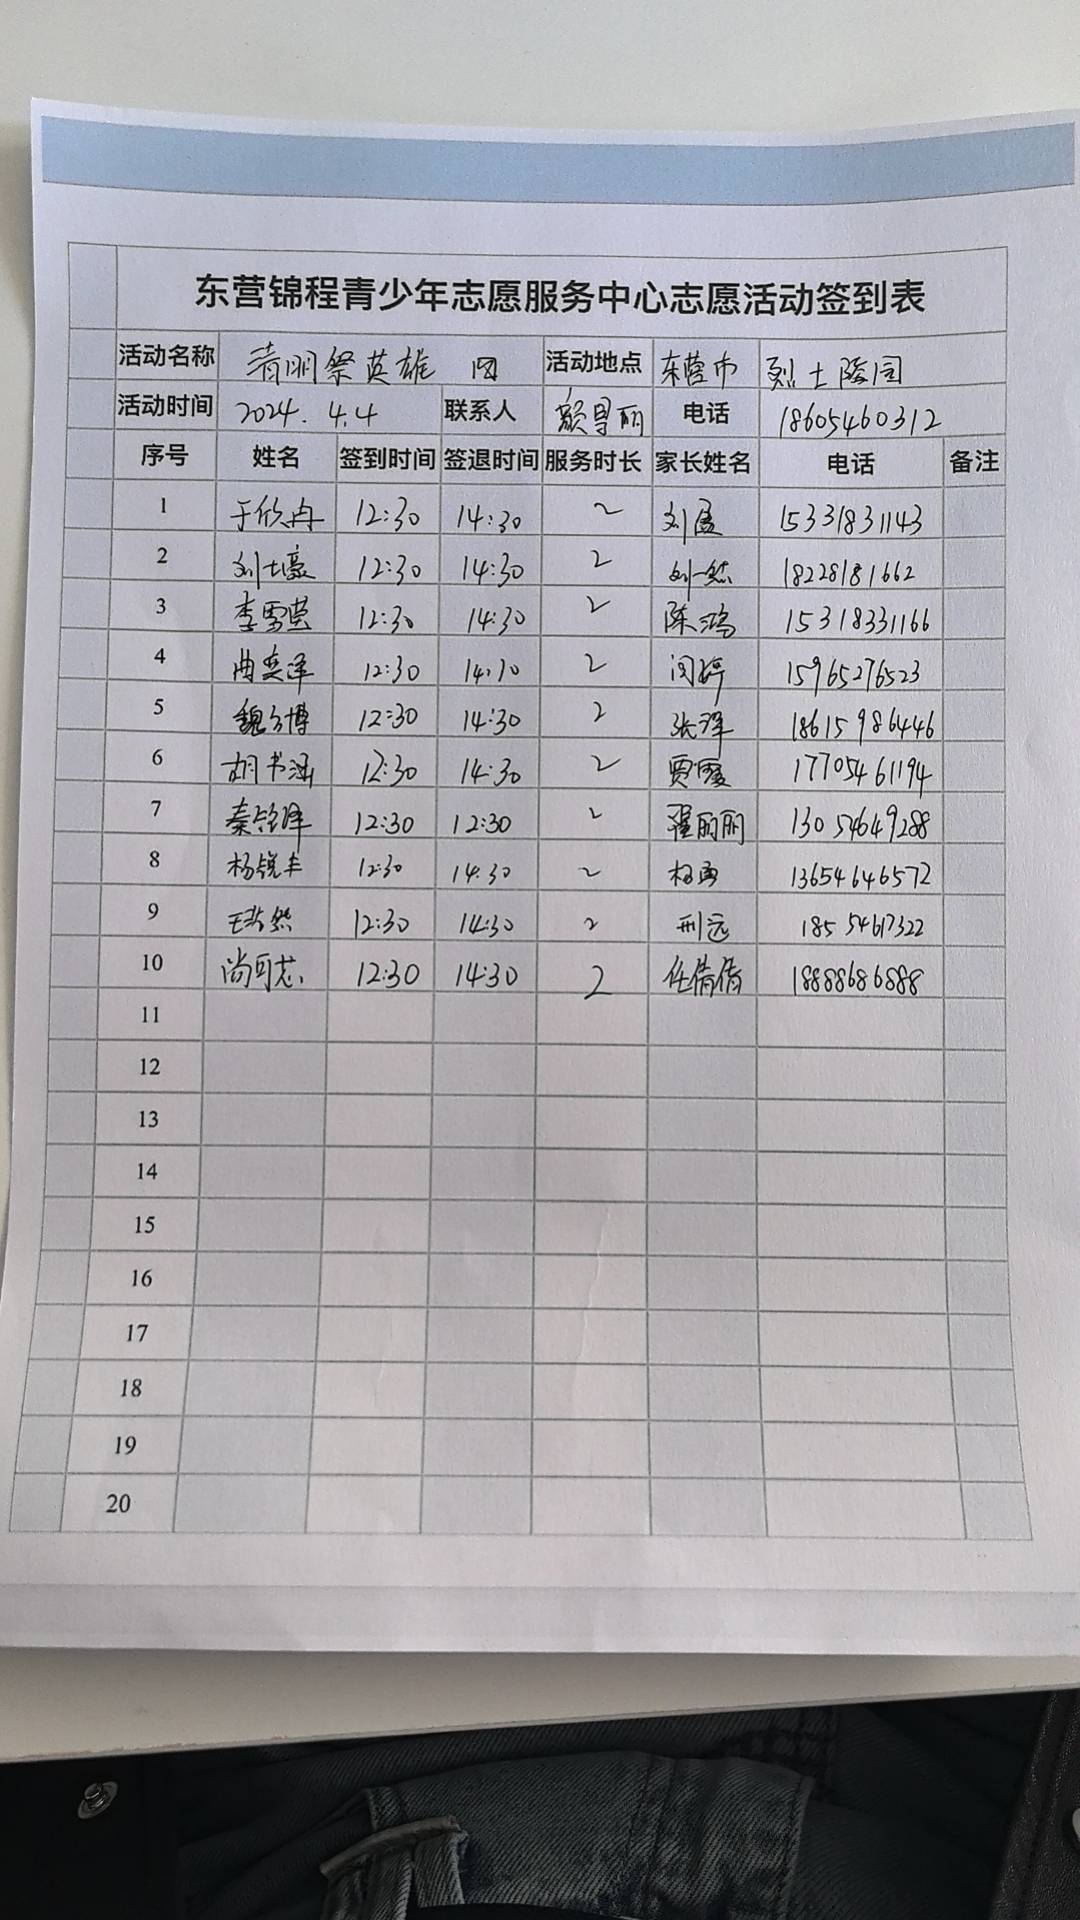 东营锦程青少年志愿服务中心志愿活动签到表
活动名称 清明祭英雄 活动地点 东营市 烈士陵园
活动时间 2024.4.4 联系人 电话 18605460312
序号 姓名 签到时间 签退时间 服务时长 家长姓名 电话 备注
1 于欣冉 12:30 14:30 2 15331831143
2 刘士豪 12:30 14:30 2 刘一然 18228181662
3 李雪莹 12:30 14:30 2 陈鸿 15318331166
4 曲奕泽 12:30 2 闫婷 15965276523
5 12:30 14:30 2 张泽 18615986446
6 胡书涵 12:30 14:30 2 贾霞 17705461194
7 秦铭泽 12:30 12:30 2 翟丽丽 13054649288
8 杨锐丰 12:30 14:30 2 杨勇 13654646572
9 王浩然 12:30 14:30 2 邢远 18554617322
10 尚可芯 12:30 14:30 2 任倩倩 18888686888
11
12
13
14
15
16
17
18
19
20